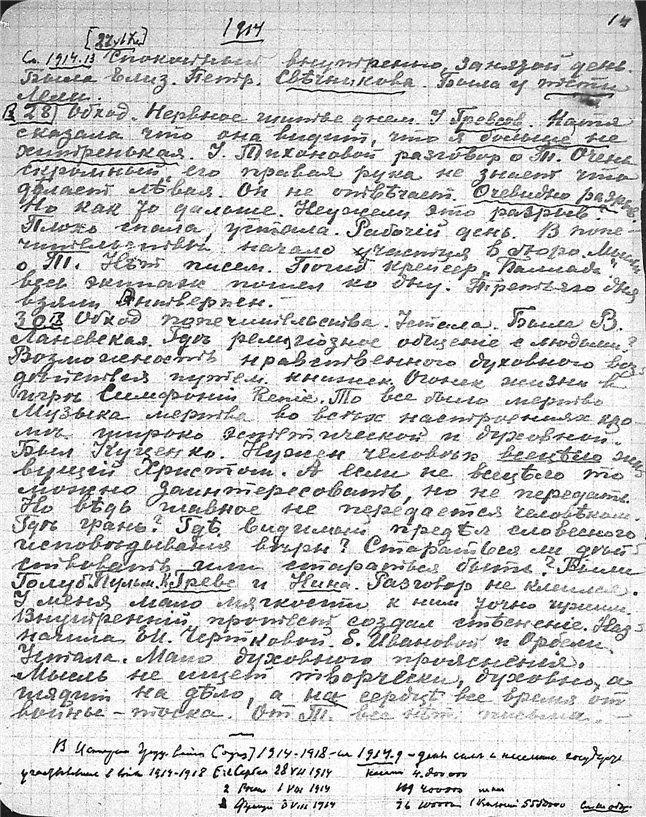 1914
14
[27 сент.]
См. 1914.13 Спокойный внутренно, занятой день.
Была Елиз. Петр. Свѣчникова. Была у тети
Лели.
28] Обход. Нервное питье днем. У Гревсов. Катя
сказала что она видит, что я больше не
хитренькая. У Тихановой разговор о Т. Очень
скромный, его правая рука не знает что
делает лѣвая. Он не отвѣчает. Очевидно разрыв.
Но как же дальше. Неужели это разрыв.
Плохо спала, устала. Рабочий день. В попе-
чительствѣ начало участия в бюро. Мысли
о Т. Нѣт писем. Погиб крейсер "Паллада"
весь экипаж пошел ко дну. Третьего дня
взяли Антверпен.
30 Обход попечительства. Устала. Была В.
Ланевская. Гдѣ религиозное общение с людьми?
Возможность нравственного духовного воз-
дѣйствия путем книжек Огонек жизни в
игрѣ Симфонии Renié. То все было мертво
Музыка мертва во всѣх настроениях кро-
мѣ широко эстетической и духовной.
Был Куценко. Нужен человѣк всецѣло жи-
вущий Христом. А если не всецѣло то
можно заинтересовать, но не передать.
Но вѣдь главное не передается человѣком.
Гдѣ грань? Гдѣ видимый предѣл словесного
исповѣдывания вѣры? Стараться ли дѣй-
ствовать или стараться быть? Были
Голуб. Гревс и Нина. Разговор не клеился.
У меня мало мягкости к ним
Внутренний протест создал стѣснение. На-
чала Чертковой. Е. Ивановой и Орбели.
Устала. Мало духовного прояснения.
Мысль не ищет творчески, духовно, а
глядит на дѣло, а на сердцѣ все время от
войны – тоска. От Т. все нѣт письма.
В 1914-1918
1914-1918 28 VII 1914 4.800000
2 1 VIII 1914
3 VIII 1914